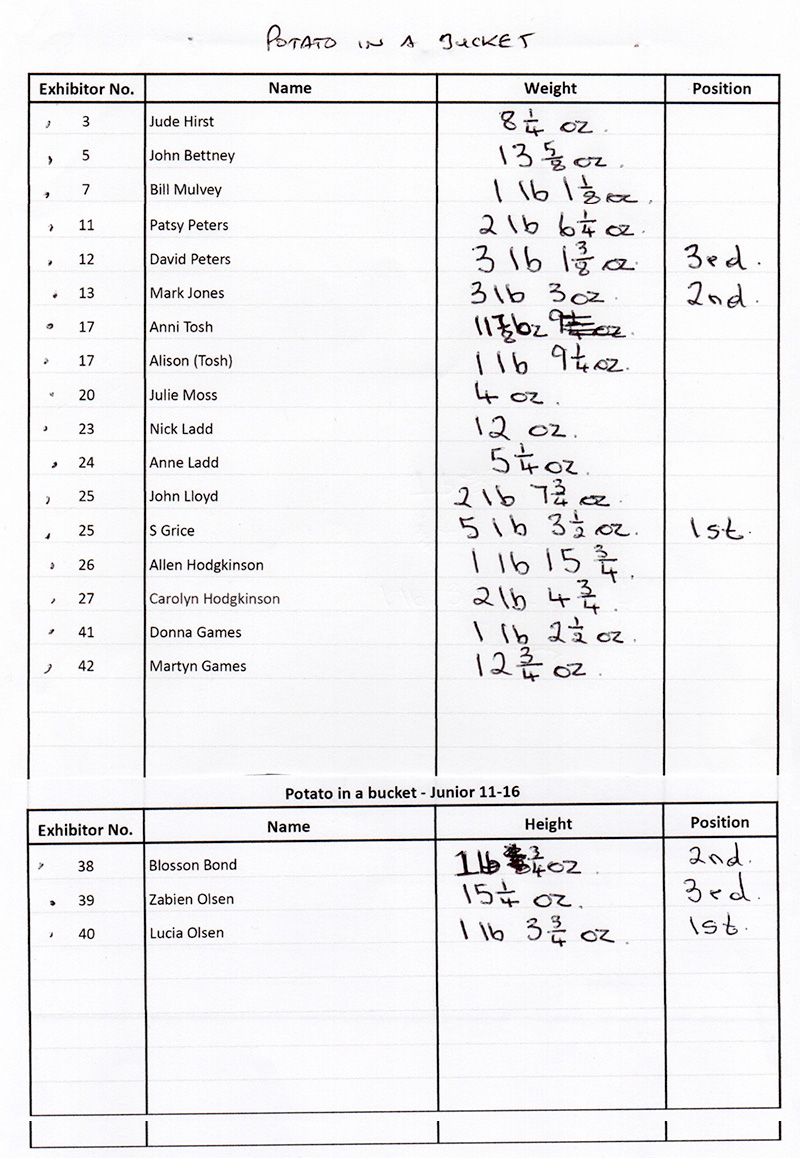 POTATO IN A BUCKET
Exhibitor No. Name Weight Position
3 Jude Hirst 8 1/4 oz.
5 John Bettney 13 5/8 oz.
7 Bill Mulvey 1 lb 1 1/8 oz.
11 Patsy Peters 2 lb 6 1/4 oz.
12 David Peters 3 lb 1 3/8 oz. 3rd.
13 Mark Jones 3 lb 3 oz. 2nd.
17 Anni Tosh 11 7/8 oz
17 Alison (Tosh) 1 lb 9 1/4 oz.
20 Julie Moss 4 oz.
23 Nick Ladd 12 oz.
24 Anne Ladd 5 1/4 oz.
25 John Lloyd 2 lb 7 3/4 oz.
25 S Grice 5 lb 3 1/2 oz. 1st.
26 Allen Hodgkinson 1 lb 15 3/4.
27 Carolyn Hodgkinson 2 lb 4 3/4.
41 Donna Games 1 lb 2 1/2 oz.
42 Martyn Games 12 3/4 oz.
Potato in a bucket - Junior 11-16
Exhibitor No. Name Height Position
38 Blosson Bond 1 lb 3/4 oz 2nd.
39 Zabien Olsen 15 1/4 oz. 3rd.
40 Lucia Olsen 1 lb 3 3/4 oz. 1st.